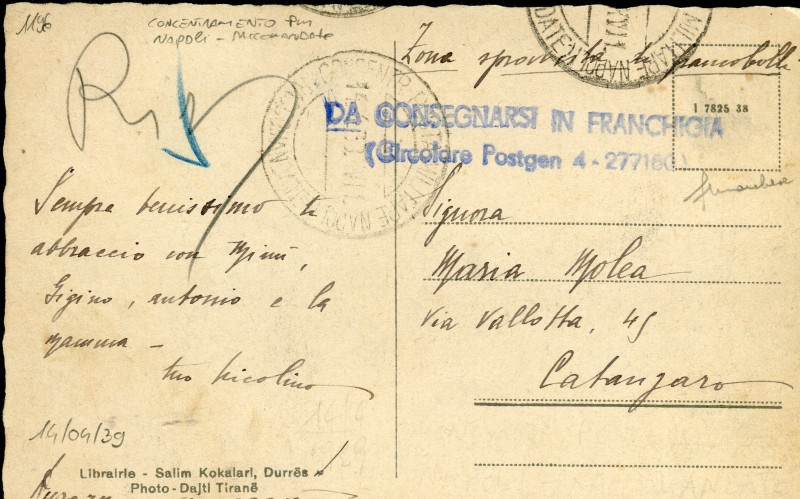 1196
CONCENTRAMENTO PM
NAPOLI -
Zona sprovvista di francobolli
DA CONSEGNARSI IN FRANCHIGIA
(Circolare Postgen 4 - 277180)
1 7825 38
Sempre benissimo ti
abbraccio con Mimì,
Gigino, Antonio e la
mamma -
tuo Nicolino
14/04/39
Librairie - Salim Kokalari, Durrës
Photo - Dajti Tiranë
Signora
Maria Molea
Via Vallotta, 45
Catanzaro